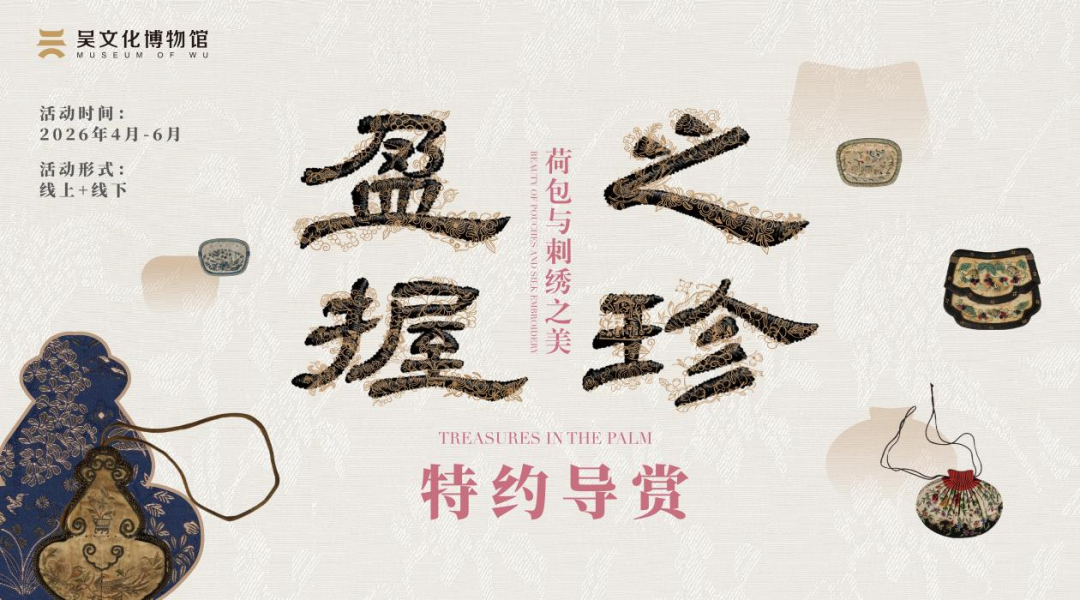 吴文化博物馆
MUSEUM OF WU
活动时间：
2026年4月-6月
活动形式：
线上+线下
盈握之珍
荷包与刺绣之美
BEAUTY OF POUCHES AND SILK EMBROIDERY
TREASURES IN THE PALM
特约导赏